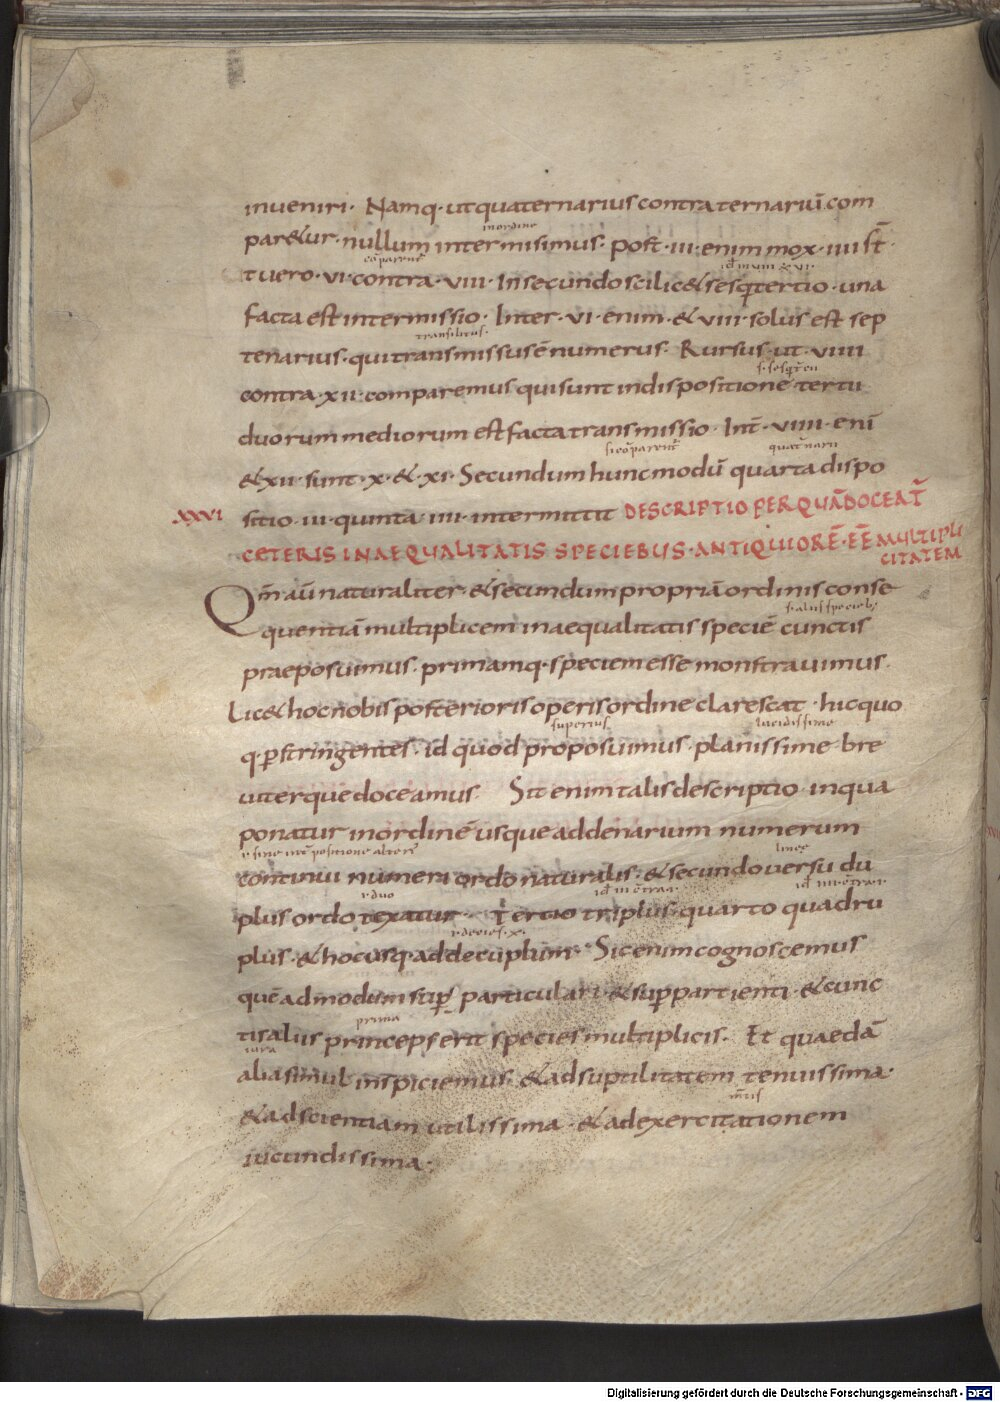 inueniri · Namq · ut quaternarius contra ternariū com
in ordine
par&ur · nullum intermisimus · post · iii · enim mox · iiii st̄ ·
cōparent̄
t uero · vi · contra · viii · In secundo scilic& sesq̄tertio · una
facta est intermissio · Inter · vi · enim · & viii · solus est sep
transilitus ·
tenarius · qui transmissus ē numerus · Rursus · ut · viiii
contra · xii · comparemus qui sunt in dispositione tertii
duorum mediorum est facta transmissio · Int̄ · viiii · enī
quat̄narii
& xii · sunt · x · & · xi · Secundum hunc modū quarta dispo
xxvi
sitio · iii · quinta · iiii · intermittit DESCRIPTIO PER QUĀ DOCEAT̄
CETERIS INAEQUALITATIS SPECIEBUS · ANTIQUIORĒ · EĒ MULTIPLI
CITATEM
Qm̄ aū naturaliter · & secundum propriā ordinis conse
s · aliis specieb;
quentiā multiplicem inaequalitatis speciē cunctis
praeposuimus · primamq · speciem esse monstrauimus ·
Lic& hoc nobis posterioris operis ordine clarescat · hic quo
superius lucidissime
q · pstringentes · id quod proposuimus · planissime bre
uiterque doceamus · Sit enim talis descriptio · in qua
ponatur in ordinē usque ad denarium numerum
lineę
continui numeri ordo naturalis · & secundo uersu du
duo
plus ordo texatur · Tertio triplus · quarto quadru
decies · x ·
plus · & hoc usq · ad decuplum · Sic enim cognoscemus
quēadmodum sup̄ particulari · & sup̄partienti · & cunc
prima
tis aliis princeps erit species multiplicis · Et quaedā
alia simul inspiciemus · & ad suptilitatem tenuissima ·
m̄tis
& ad scientiam utilissima · & ad exercitationem
iucundissima ·
Digitalisierung gefördert durch die Deutsche Forschungsgemeinschaft · DFG